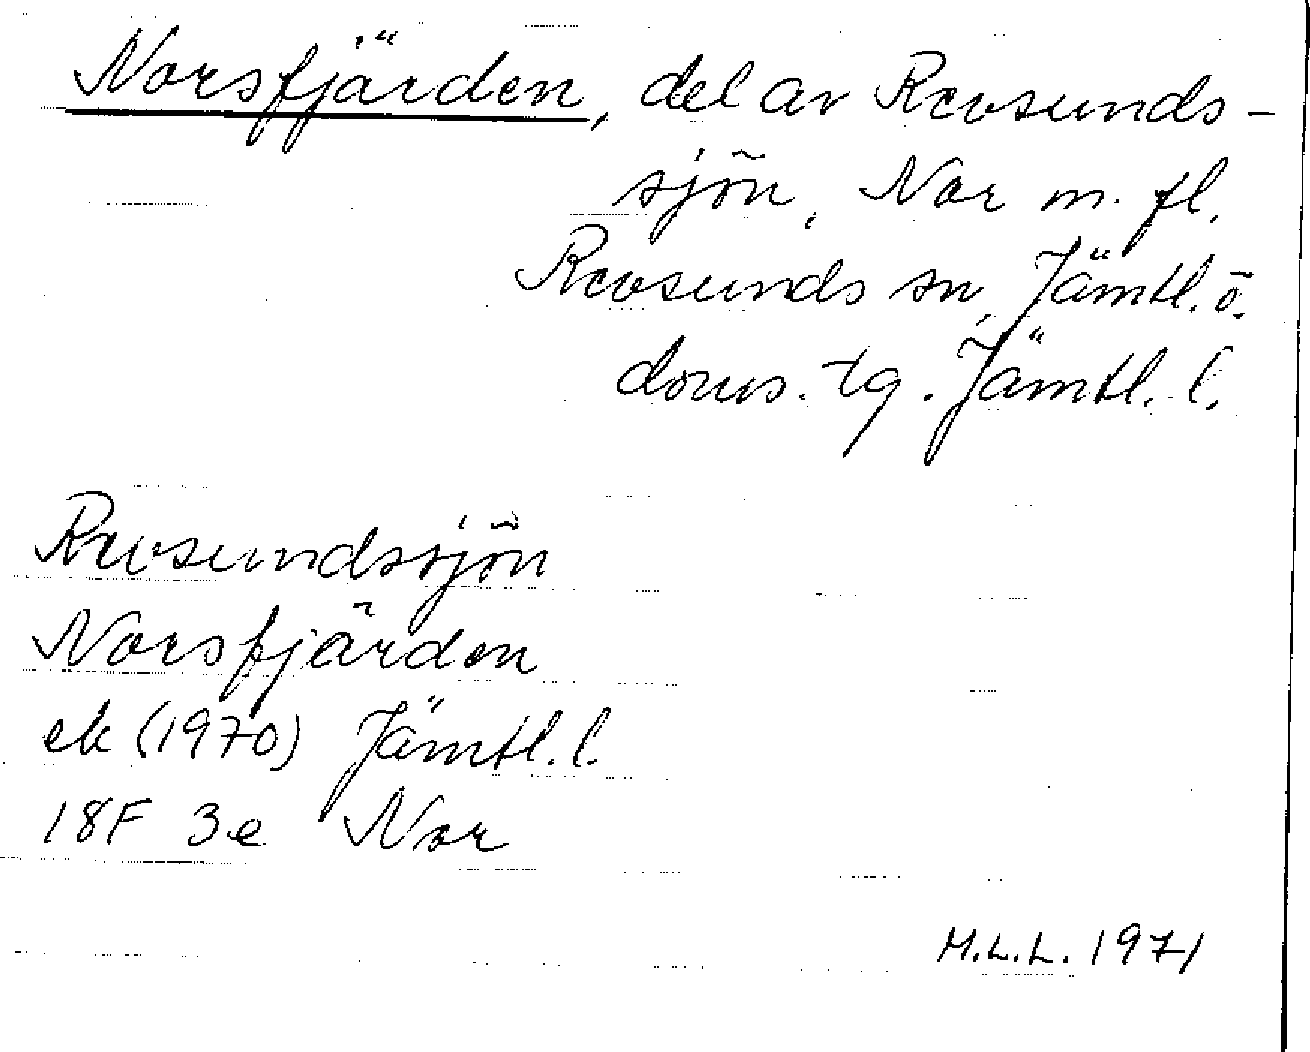 Norsfjärden, del av Revsunds-
sjön, Nor m. fl.
Revsunds sn, Jämtl. ö.
doms. tg. Jämtl. l.
Revsundssjön
Norsfjärden
ek (1970) Jämtl. l.
18F 3e Nor
M.L.L. 1971